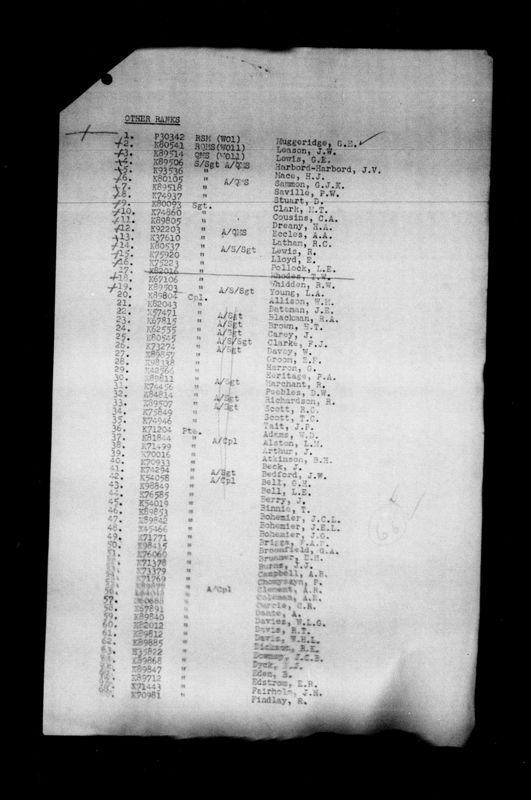 OTHER RANKS
1. P30342 RSM (WO1) Muggeridge, G.E.
2. K80541 RQMS(WO11) Leason, J.W.
3. K89514 QMS (WO11) Lewis, G.E.
4. K89506 S/Sgt A/QMS Harbord-Harbord, J.V.
5. K93536 " Mace, H.J.
6. K80105 " A/QMS Sammon, G.J.K.
7. K89518 " Saville, P.W.
8. K74937 " Stuart, D.
9. K80093 Sgt. Clark, M.I.
10. K74860 " Cousins, C.A.
11. K89805 " Dreany, H.A.
12. K92203 " A/QMS Eccles, A.A.
13. K37610 " Latham, R.C.
14. K80537 " A/S/Sgt Lewis, R.
15. K75920 " Lloyd, E.
16. K75223 " Pollock, L.E.
17. K82016 " Rhodes, T.W.
18. K67106 " Whidden, R.W.
19. K89503 " A/S/Sgt Young, L.A.
20. K89804 Cpl. Allison, W.H.
21. K82043 " Bateman, J.E.
22. K57471 " A/Sgt Blackman, R.A.
23. K67815 " A/Sgt Brown, H.T.
24. K62555 " A/Sgt Carey, J.
25. K80545 " A/S/Sgt Clarke, F.J.
26. K73274 " A/Sgt Davey, W.
27. K89857 " Groom, E.F.
28. K98338 " Harron, G.
29. K42566 " Heritage, P.A.
30. K89811 " A/Sgt Marchant, R.
31. K74456 " Peebles, D.W.
32. K84814 " A/Sgt Richardson, R.
33. K89507 " A/Sgt Scott, R.C.
34. K75849 " Scott, T.C.
35. K74946 " Tait, J.P.
36. K71204 Pte. Adams, W.D.
37. K81844 " A/Cpl Alston, L.M.
38. K71499 " Arthur, J.
39. K70016 " Atkinson, B.H.
40. K70933 " Beck, J.
41. K74294 " A/Sgt Bedford, J.W.
42. K54058 " A/Cpl Bell, G.H.
43. K98849 " Bell, L.E.
44. K76585 " Berry, J.
45. K54019 " Binnie, T.
46. K89853 " Bohemier, J.C.L.
47. K89842 " Bohemier, J.E.L.
48. K45466 " Bohemier, J.G.
49. K71771 " Briggs, F.A.F.
50. K98415 " Broomfield, G.A.
51. K76060 " Brunner, E.H.
52. K71378 " Burns, J.J.
53. K73379 " Campbell, A.B.
54. K71769 " Chomyszyn, P.
55. " Clement, A.R.
56. " A/Cpl Coleman, A.E.
57. " Currie, C.R.
58. K67891 " Dante, A.
59. K89840 " Davies, W.L.G.
60. K82012 " Davis, R.T.
61. K89812 " Davis, W.H.L.
62. K89885 " Dickson, R.K.
63. H35822 " Downey, J.C.B.
K89868 " Dyck
K89847 " Eden, S.
K89712 " Edstrom, E.R.
K71443 " Fairholm, J.M.
68. K70981 " Findlay, R.
66